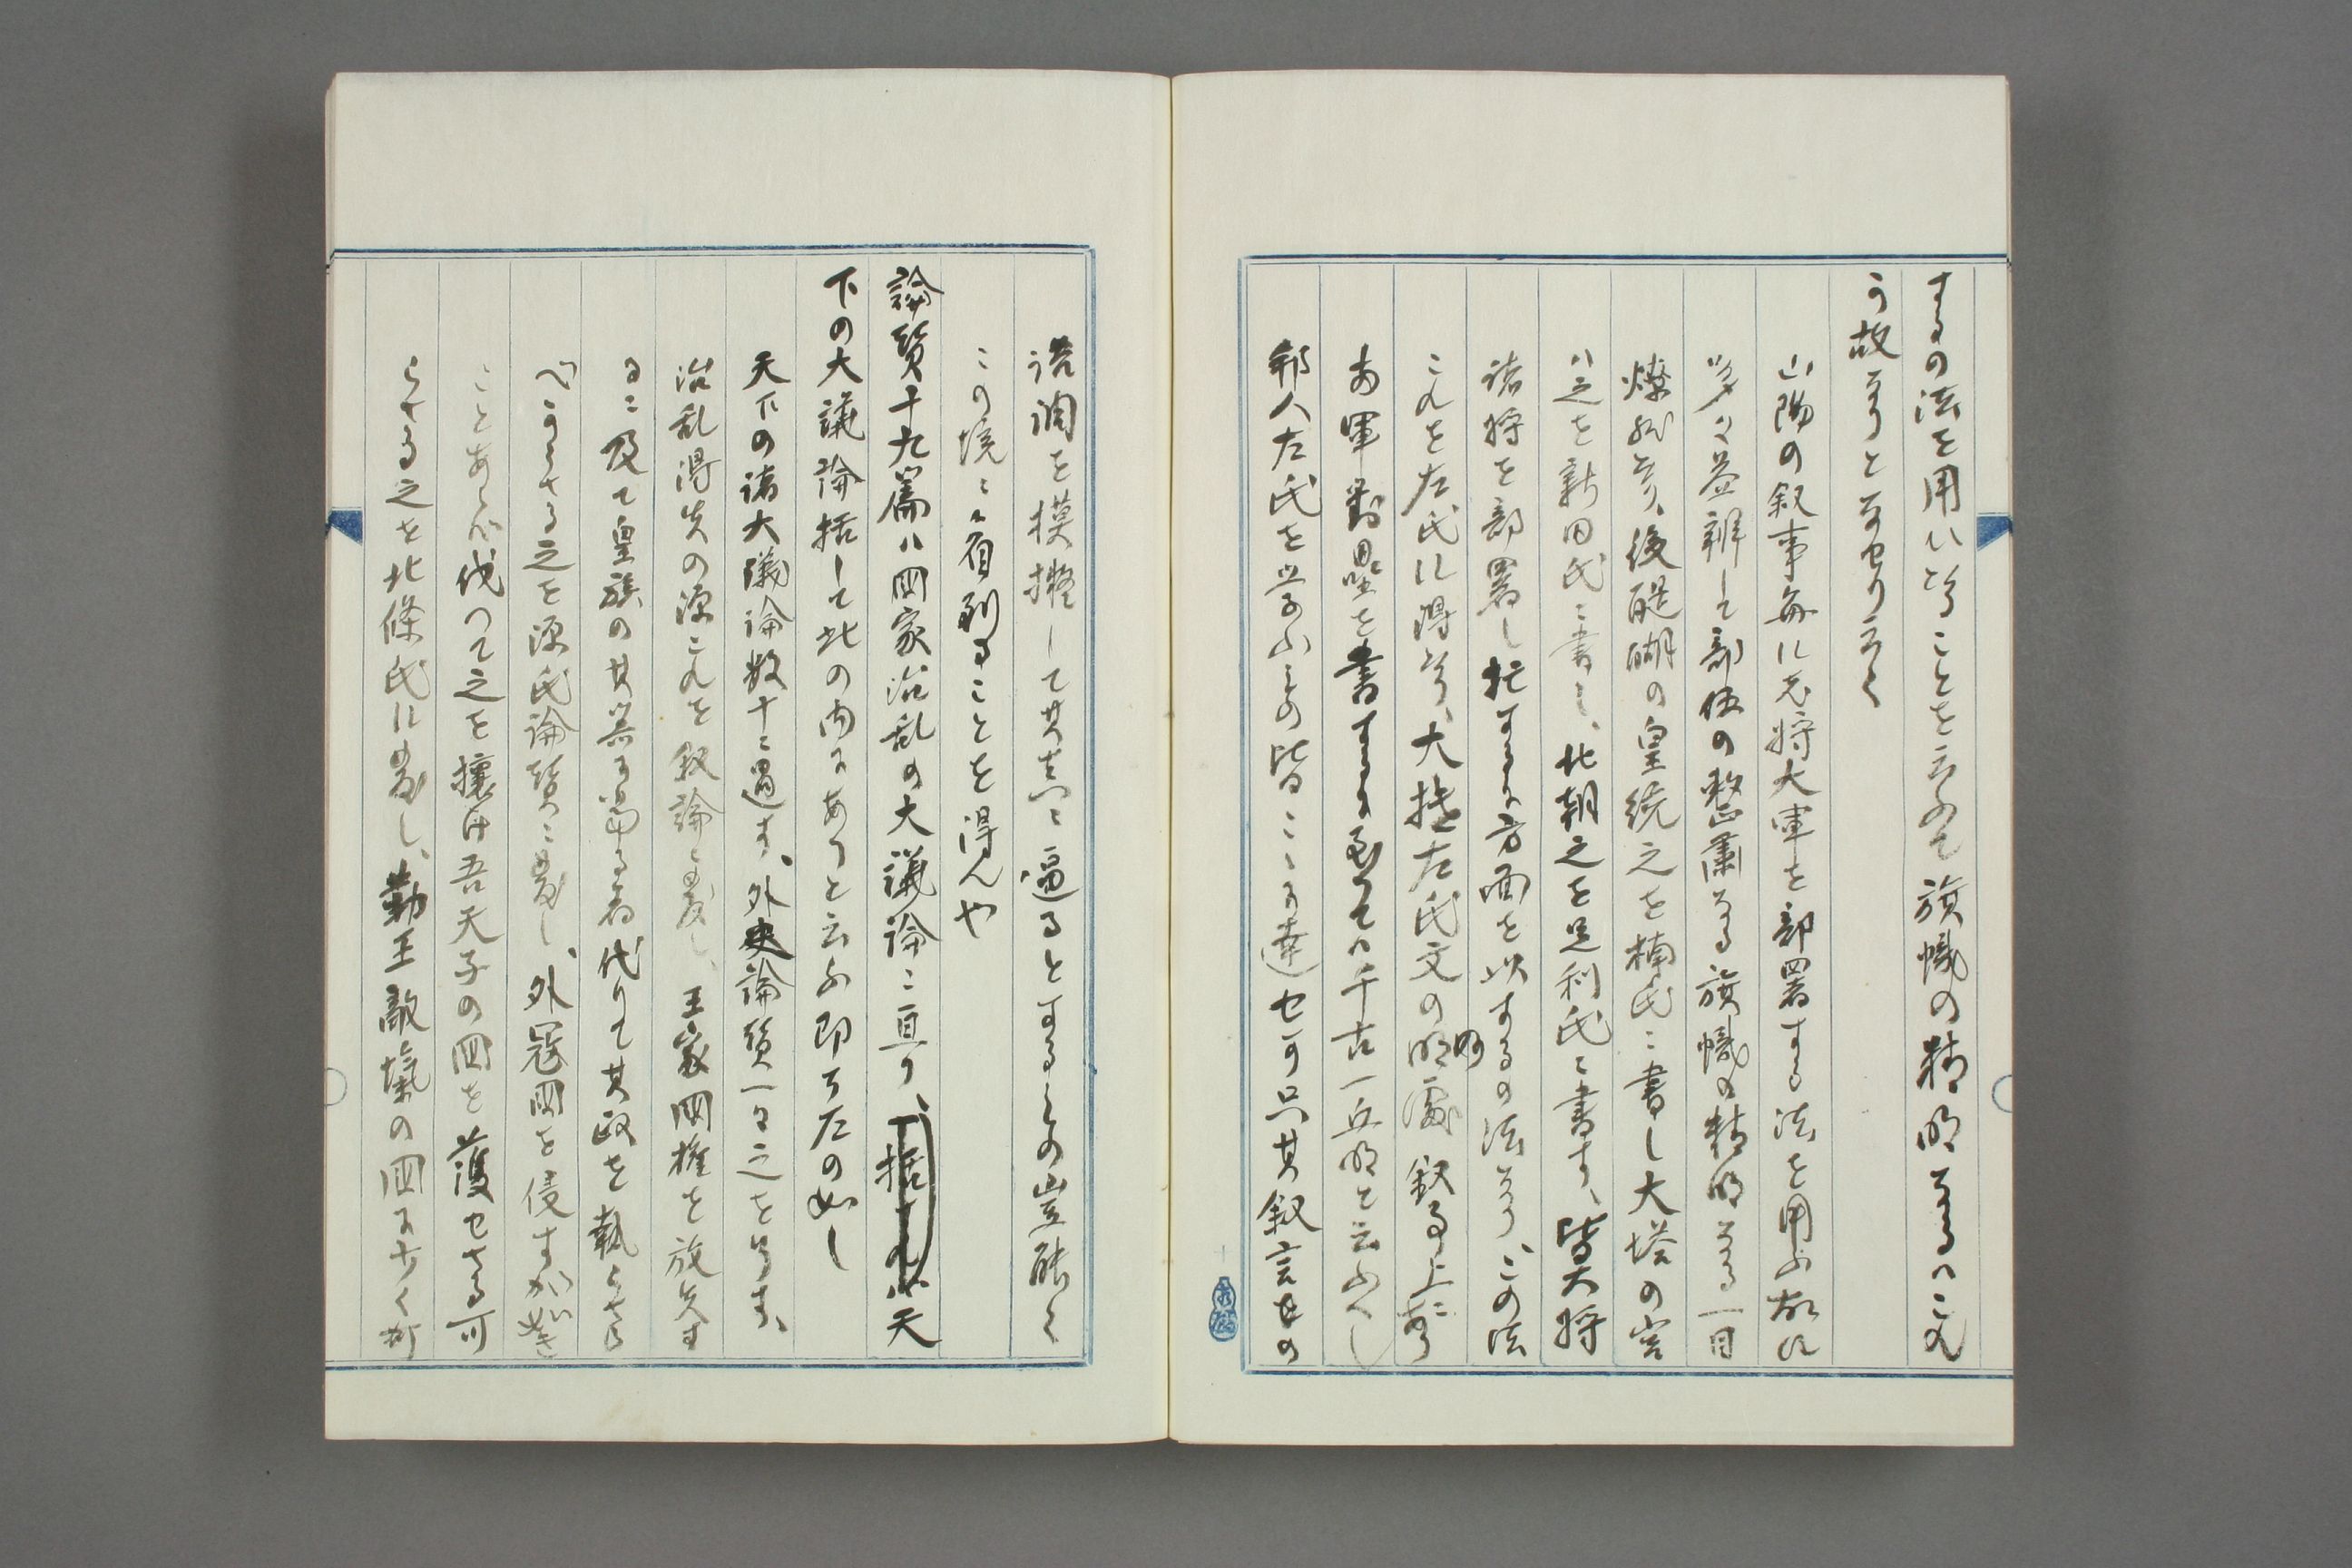 するの法を用いしことを云ふて旗幟の精明なるハこれ
う故なりとなせり云く
山陽の叙事毎に老将大軍を部署する法を用ふ故に
益辨して部伍の整肅なる旗幟の精明なる一目
燎然なり、後醍醐の皇統之を楠氏ニ書し大塔の宮
ハ之を新田氏ニ書し、北朝之を足利氏ニ書す、皆大将
諸将を部署し托するに方面を以するの法なり、この法
これを左氏に得る、大抵左氏文の明處叙事上ニあり
両軍對壘を書するに至てハ千古一丘明と云ふべし
邦人左氏を学ふもの皆こゝに達せす只其叙言の
語調を模擬して其真ニ逼るとするもの豈能く
この境ニ有到ることを得んや
論賛十九篇ハ国家治乱の大議論ニ亘り、天
下の大議論括して此の内にありと云ふ即ち左の如し
天下の諸大議論数十ニ過す、外史論賛一々之を
治乱得失の源これを叙論に發し、王家国権を放失す
るニ及て皇族の其器に当る者代りて其政を執らさる
べからさる之を源氏論賛ニ發し、外寇国を侵すが如き
ことあらバ伐つて之を攘ひ吾天子の国を護せさる可
らさる之を北條氏に發し、勤王敵愾の国に少く可